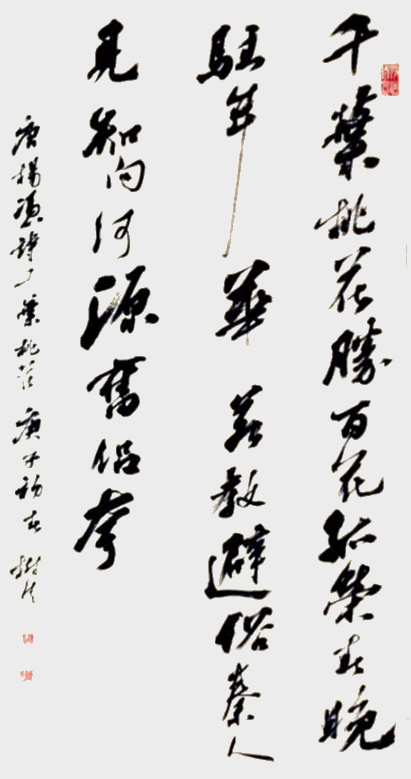 千葉桃花勝百花孤榮春晚
駐年華若教避俗秦人
見知向河源舊侶夸
唐楊憑詩千葉桃花庚子初春樹